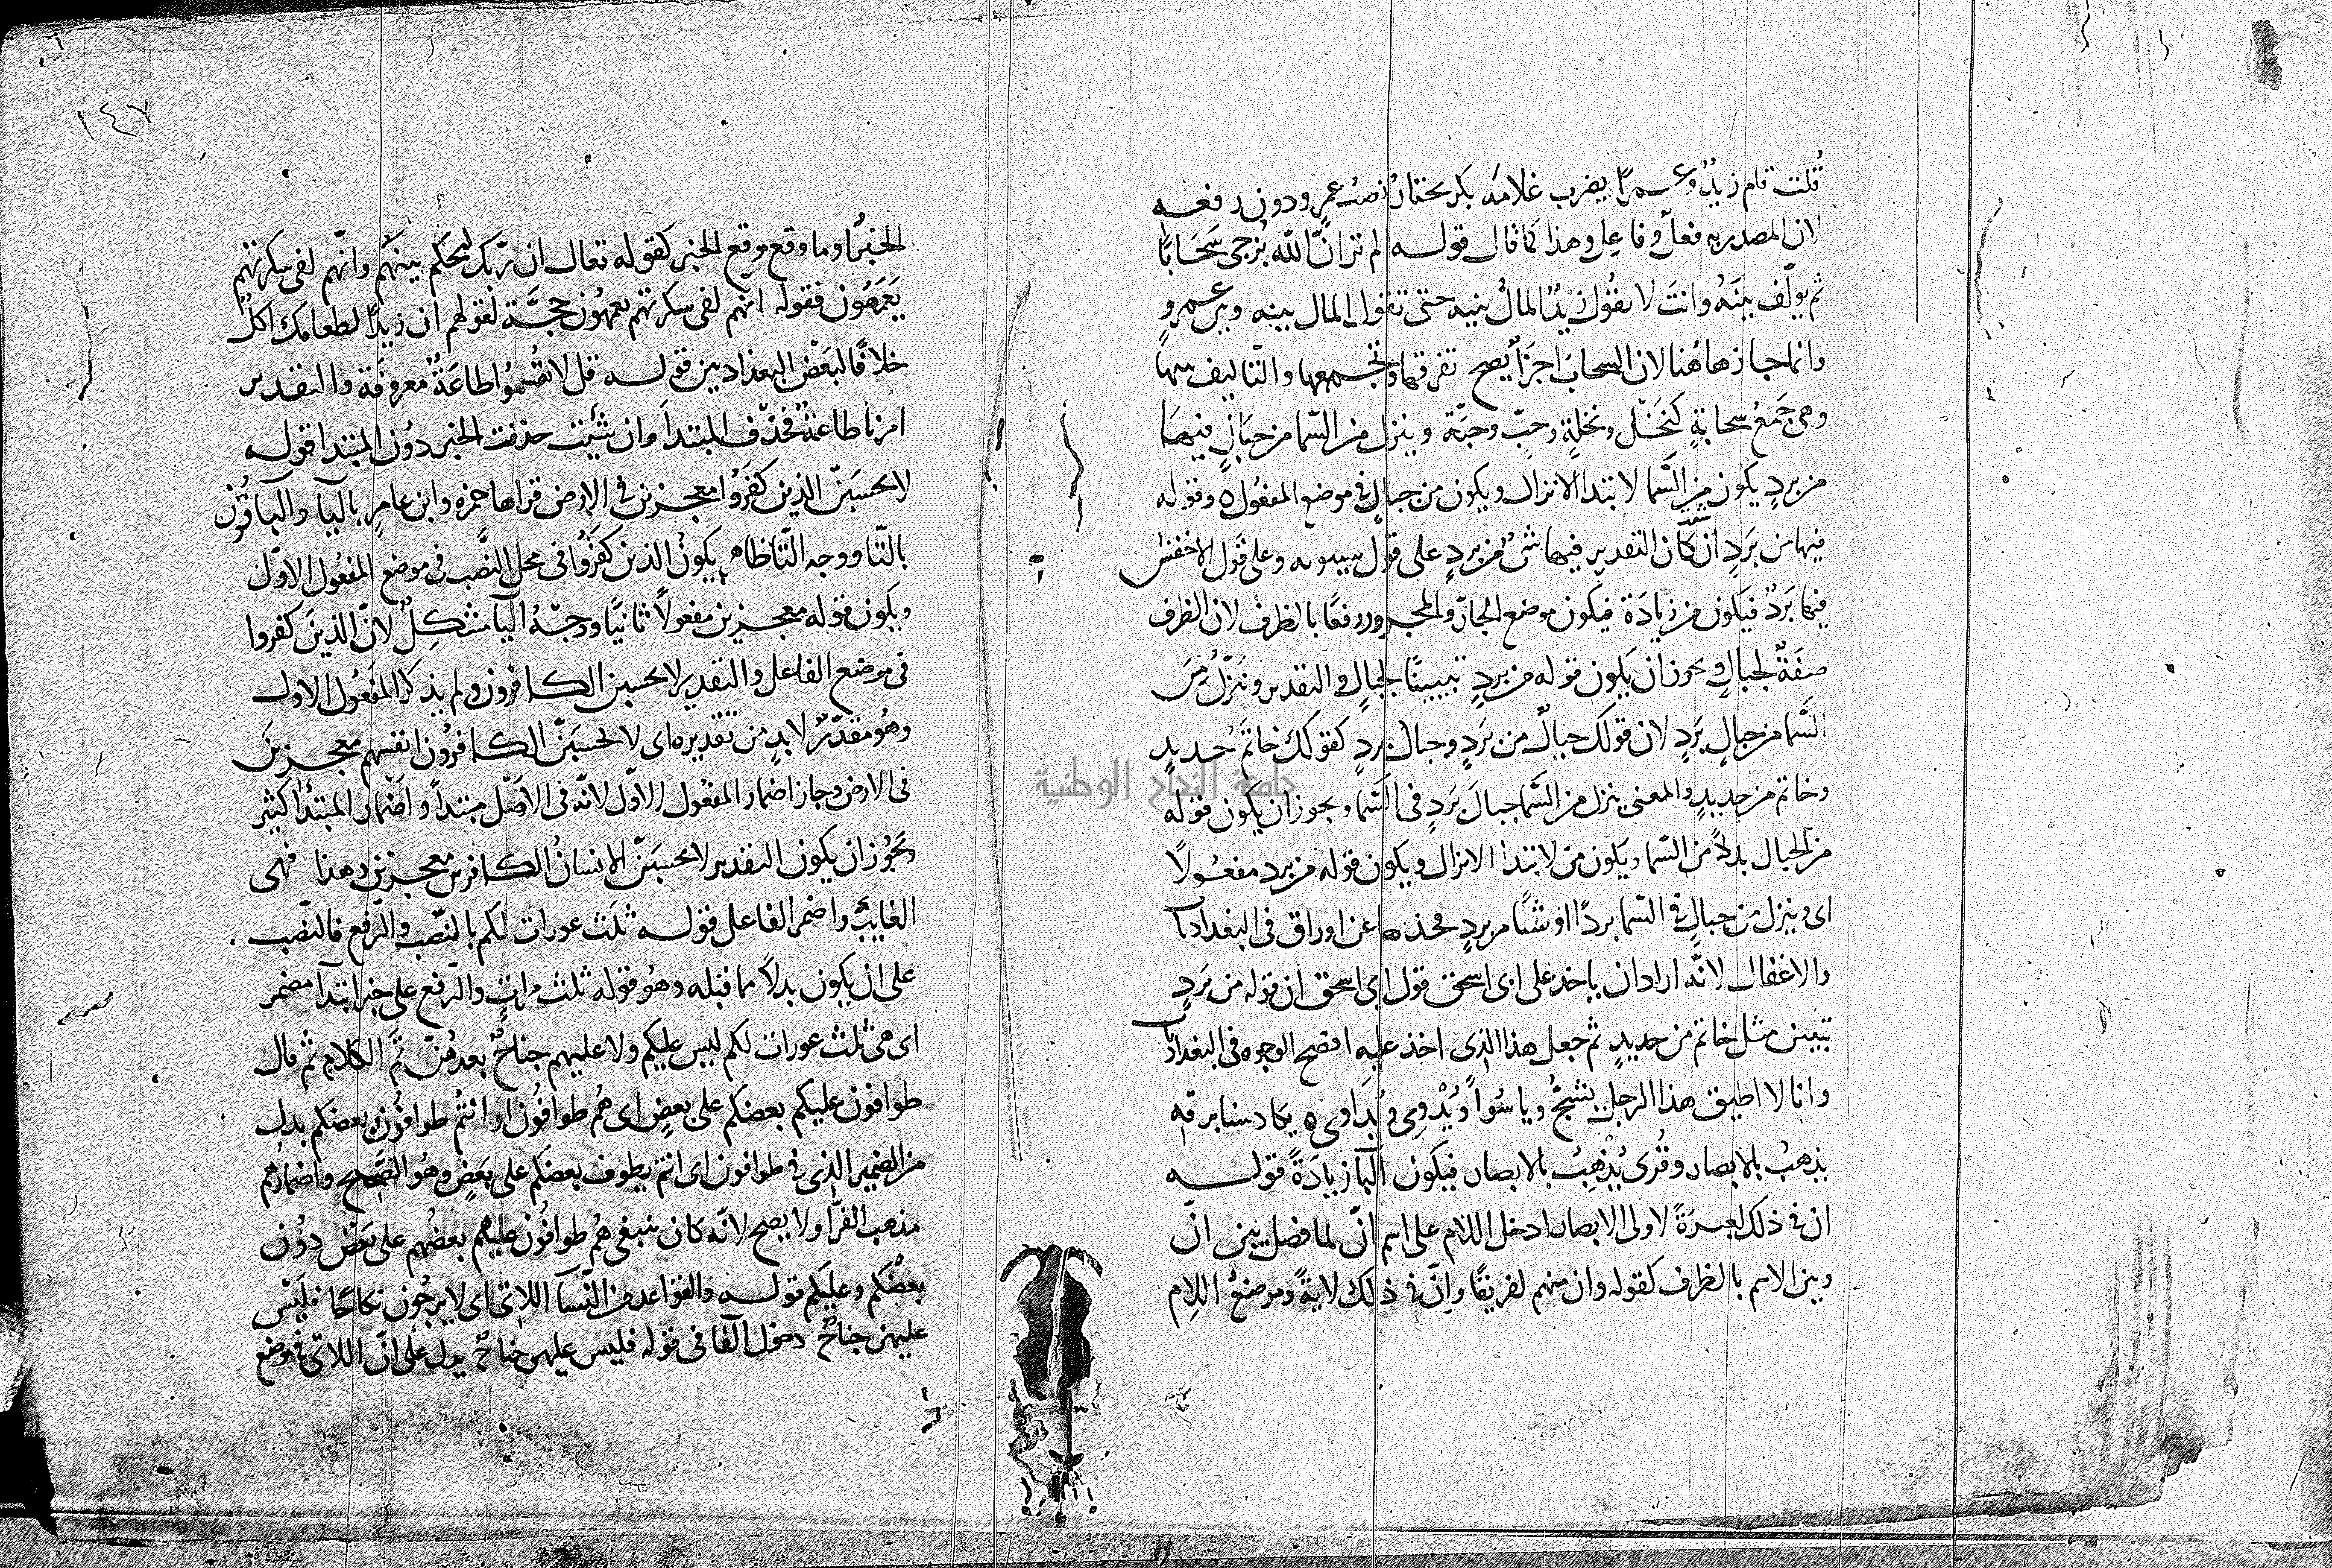 قلت قام زيدٌ وعمرًا يضرب غلامه بكر يختار نصب عمرٍو دون رفعه
لان المصدر به فعل وفاعل وهذا كما قال قوله الم تر انّ الله يُزجى سَحَابًا
ثم يولّف بينَهُ وانتَ لا تقُول زيدٌ المالُ بينه حتى تقول المال بينه وبين عمرٍو
وانما جاز هاهُنا لان السحابَ اجزآ يصح تفرقها وتجمعها والتاليف بينها
وهى جَمعُ سحابةٍ كنَخلٍ ونخلةٍ وحبّ وحبّة وينزل من السّما من جبالٍ فيها
من بردٍ يكون من السَّما لابتدا الانزال ويكون من جبالٍ فى موضع المفعُول ه وقوله
فيها من بَردٍ ان كان التقدير فيها شىٌ من بردٍ على قول سيبويه وعلى قَول الاخفش
فيها بَردٌ فيكون من زيادَة فيكون موضع الجارّ والمجرور رفعًا بالظرف لان الظرف
صفَةٌ لجبالٍ ويجوز ان يكون قوله من بردٍ تبيينًا لجبالٍ والتقدير ونَزّلَ مِنَ
السَّما من جبالٍ بَردٍ لان قولك جبالٌ من بَردٍ وجبال بردٍ كقولك خاتَمُ حديدٍ
وخاتم من حديدٍ والمعنى ينزل من السَّما جبالَ بَردٍ فى السَّما ويجوز ان يكون قوله
من الجبال بدلاً من السّما ويكون من لابتدا الانزال ويكون قوله من برد مفعُولاً
اى وينزل من جبالٍ فى السّما بردًا او شيًا من بردٍ فخذها عن اوراق فى البغداديات
والاغفال لانّه اراد ان ياخذ على ابى اسحق قول ابى اسحق ان قوله من بَردٍ
تبيين مثل خاتم من حديدٍ ثم جعل هذا الذى اخذ عليهِ افصح الوجوه فى البغداديات
وانا لا اطيق هذا الرجل يشجُّ وياسُوا ويُدْوِى ويُدَاوِى ه يكاد سنا برقه
يذهبُ بالابصار وقُرى يُذْهِبُ بالابصار فيكون البآ زيادَةً قوله
ان فى ذلك لعبرَةً لاولى الابصار ادخل اللام على اسم انّ لما فصل بين انّ
وبين الاسم بالظرف كقوله وان منهم لفريقًا وانّ فى ذلك لايةً وموضعُ اللام
١٤٧
الخبرُ او ما وقع موقع الخبر كقوله تعالى ان ربّك ليحكم بينهُم وانّهم لفى سكرتهم
يَعمَهُون فقوله انهم لفى سكرتهم يعمهُون حجَّة لقولهم ان زيدًا لطعامك اكلٌ
خلافًا لبَعض البغداديين قوله قل لا تقسمُوا طاعَةٌ معروفَة والتقدير
امرنا طاعةٌ فحذف المبتدا وان شئت حذفت الخبر دون المبتدا قوله
لا يحسبَنّ الذين كفرُوا معجزين فى الارض قراها حمزه وابن عامرٍ باليا والباقُون
بالتّا ووجه التّا ظاهر يكونُ الذين كفرُوا فى محل النَّصب فى موضع المفعُول الاوّل
ويكون قوله معجزين مفعولاً ثانيًا ووجهُ اليا مشكِلٌ لانّ الذينَ كفروا
فى موضع الفاعل والتقدير لا يحسبن الكافرون ولم يذكر المفعُول الاول
وهُو مقدّرٌ لا بد من تقديره اى لا يحسبَنّ الكافرُون انفسهم معجزينَ
فى الارض وجاز اضمار المفعُول الاوّل لانّه فى الاصل مبتدأ واضمار المبتدا كثير
ويجُوز ان يكون التقدير لا يحسبَنّ الانسانُ الكافرين معجزين وهذا نهى
الغايب واضمر الفاعل قوله ثلث عورات لكم بالنّصب والرّفع فالنّصب
على ان يكون بدلاً مما قبله وهُو قوله ثلث مراتٍ والرّفع على خبر ابتدآ مضمر
اى هى ثلث عورات لكم ليس عليكم ولا عليهم جناحٌ بعدهُنّ ثَمَّ الكلام ثم قال
طوافون عليكم بعضكم على بعضٍ اى هُم طوافُون او انتُم طوافُون وبعضكم بدل
من الضمير الذى فى طوافون اى انتم يطوف بعضكم على بَعضٍ وهُو الصَّحيح واضمارهم
مذهب الفرّا ولا يصح لانّه كان ينبغى هُم طوافُون عليهم بعضُهم على بَعض دوُن
بعضكم وعليكم قوله والقواعد من النّسآ اللاتى اى لا يرجُون نكاحًا فليسَ
عليهن جناحٌ دخول الفا فى قوله فليس عليهن جناحٌ يدل على انّ اللاتى فى موضع
جامعة النجاح الوطنية